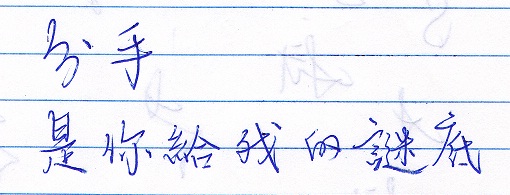 分手
是你給我的謎底